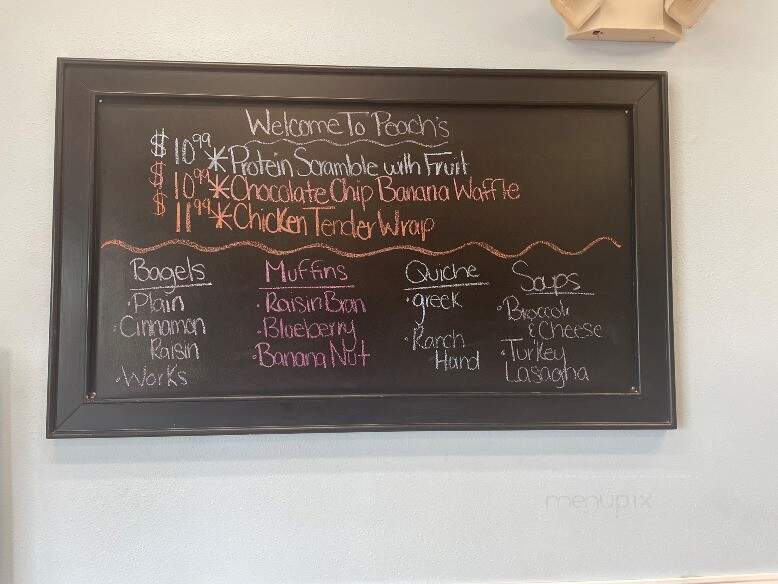 Welcome To Peach's
$10.99 * Protein Scramble with Fruit
$10.99 * Chocolate Chip Banana Waffle
$11.99 * Chicken Tender Wrap
Bagels
· Plain
· Cinnamon
Raisin
· Works
Muffins
· Raisin Bran
· Blueberry
· Banana Nut
Quiche
· greek
· Ranch
Hand
Soups
· Broccoli
& Cheese
· Turkey
Lasagna
menupix